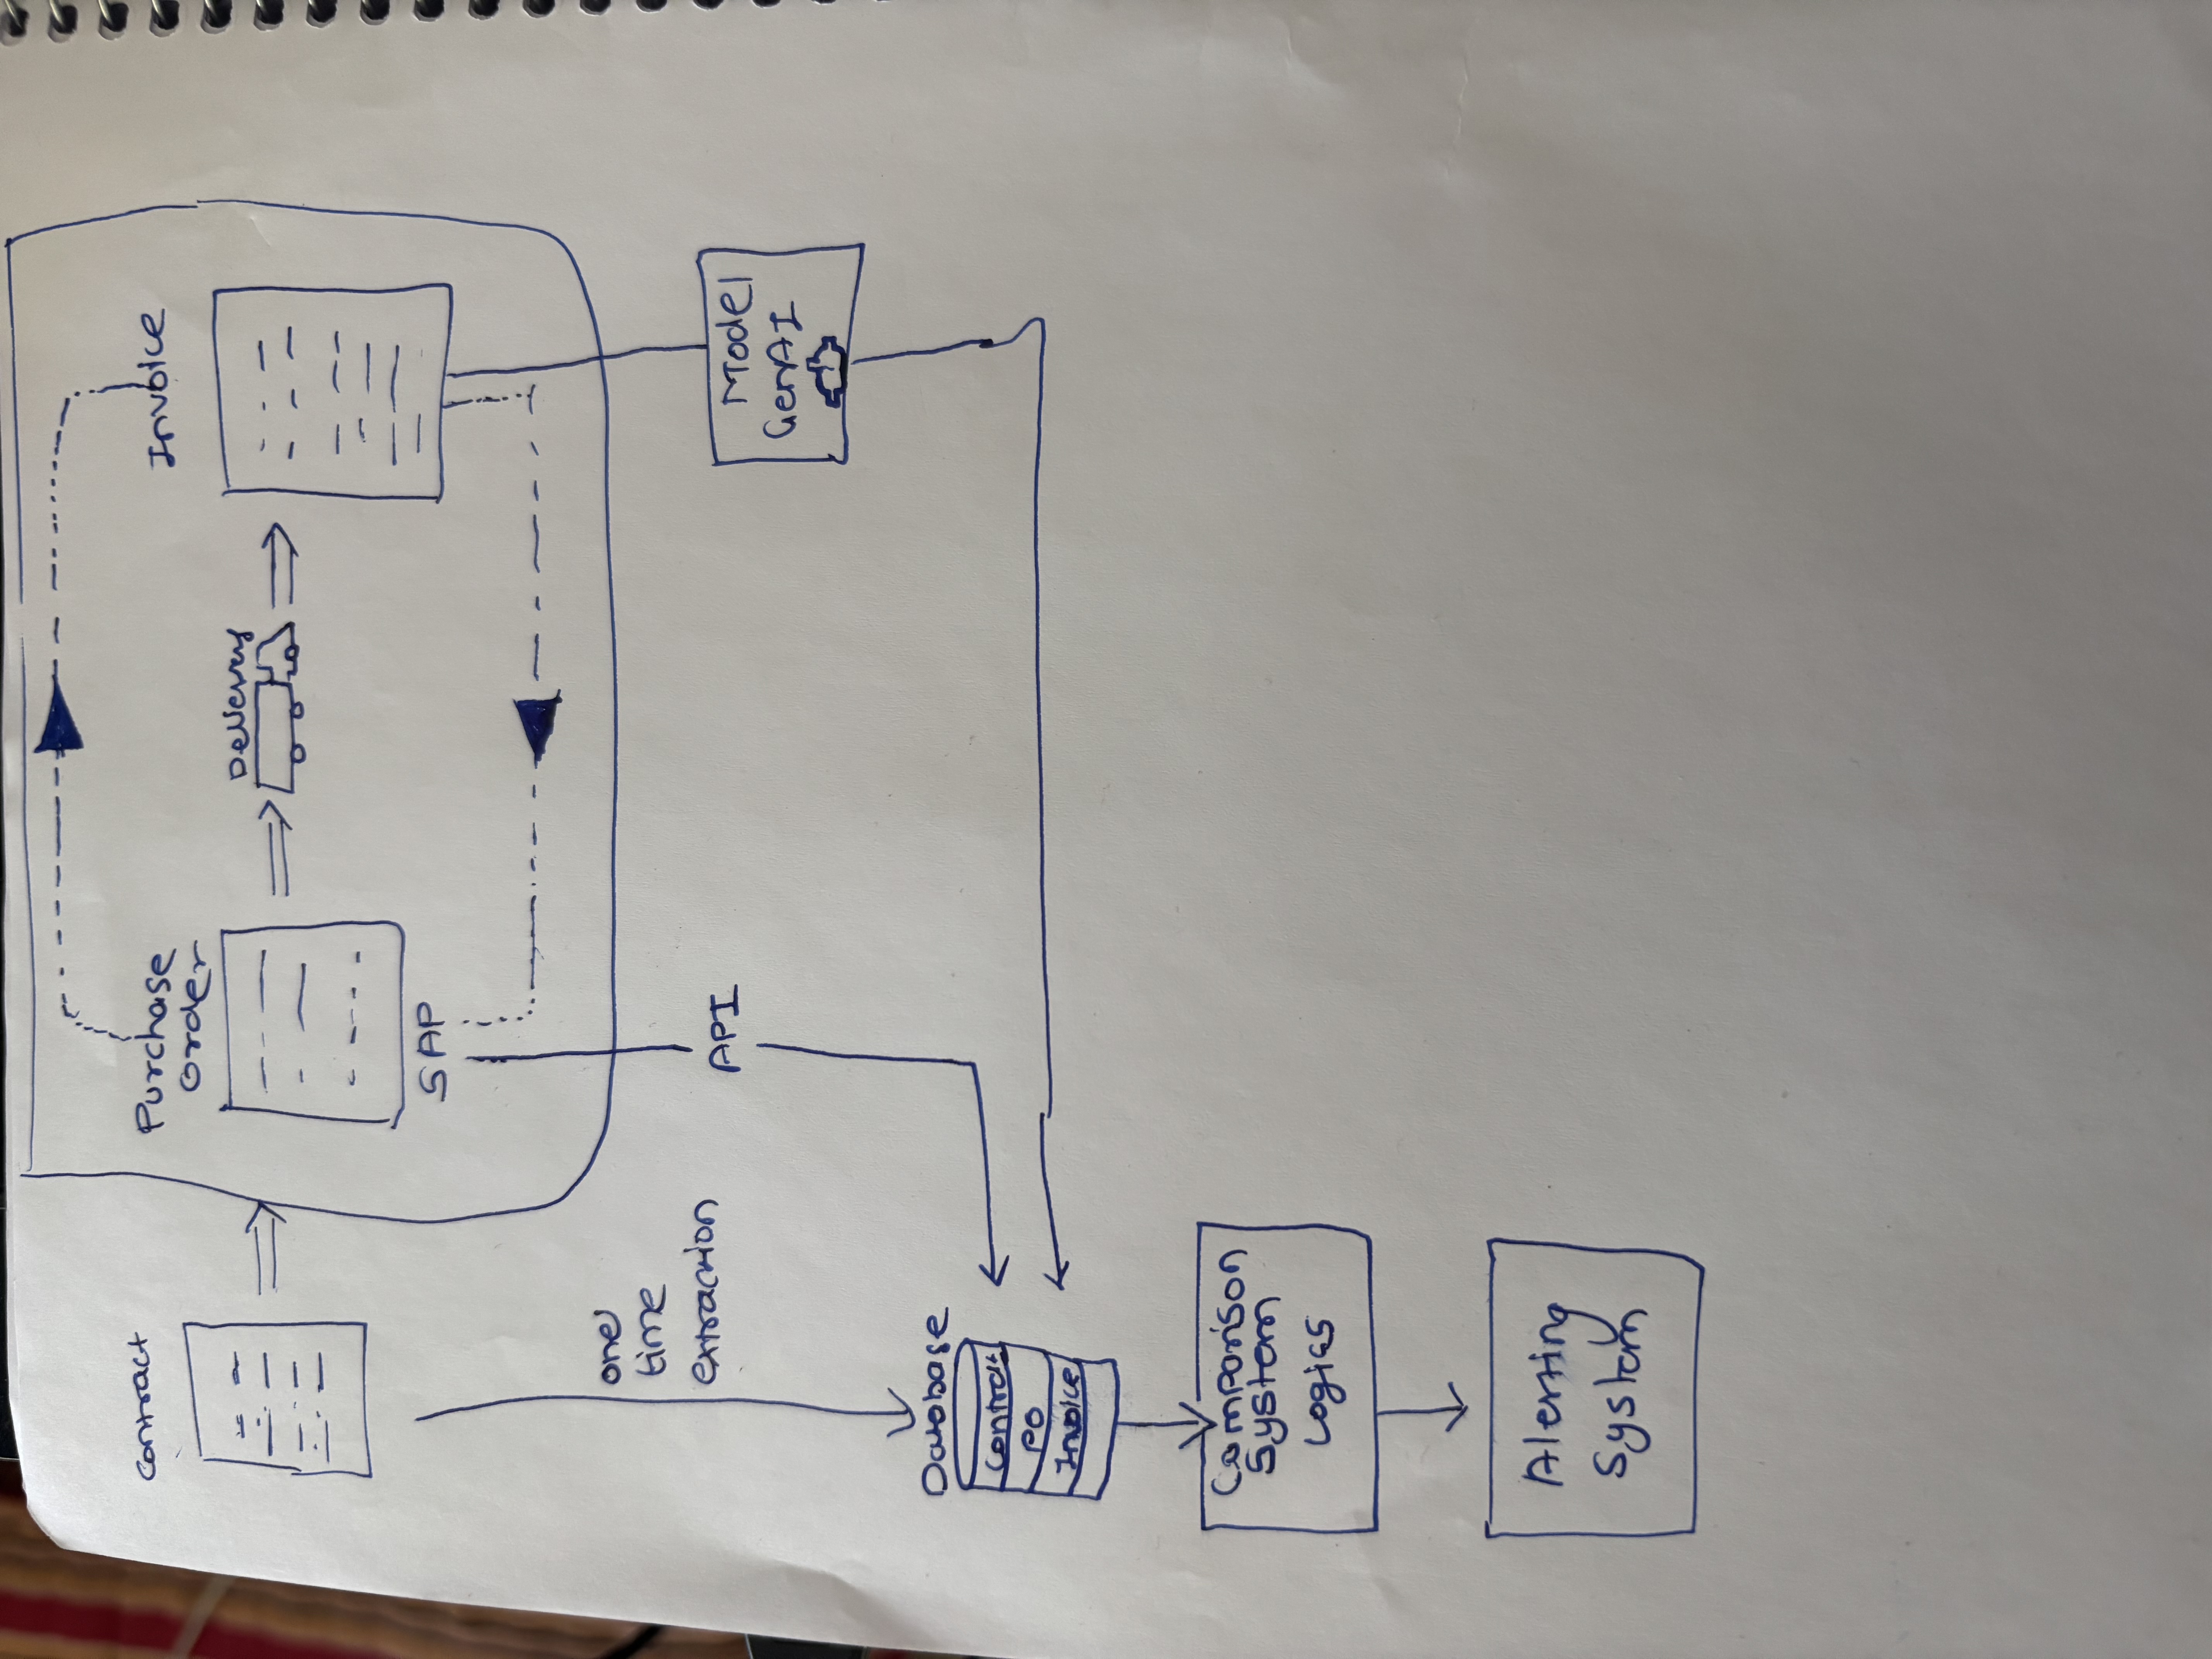 Contract
Purchase
Order
Invoice
Delivery
SAP
one
time
extraction
API
Model
GenAI
Database
Contract
PO
Invoice
Comparison
System
Logics
Alerting
System